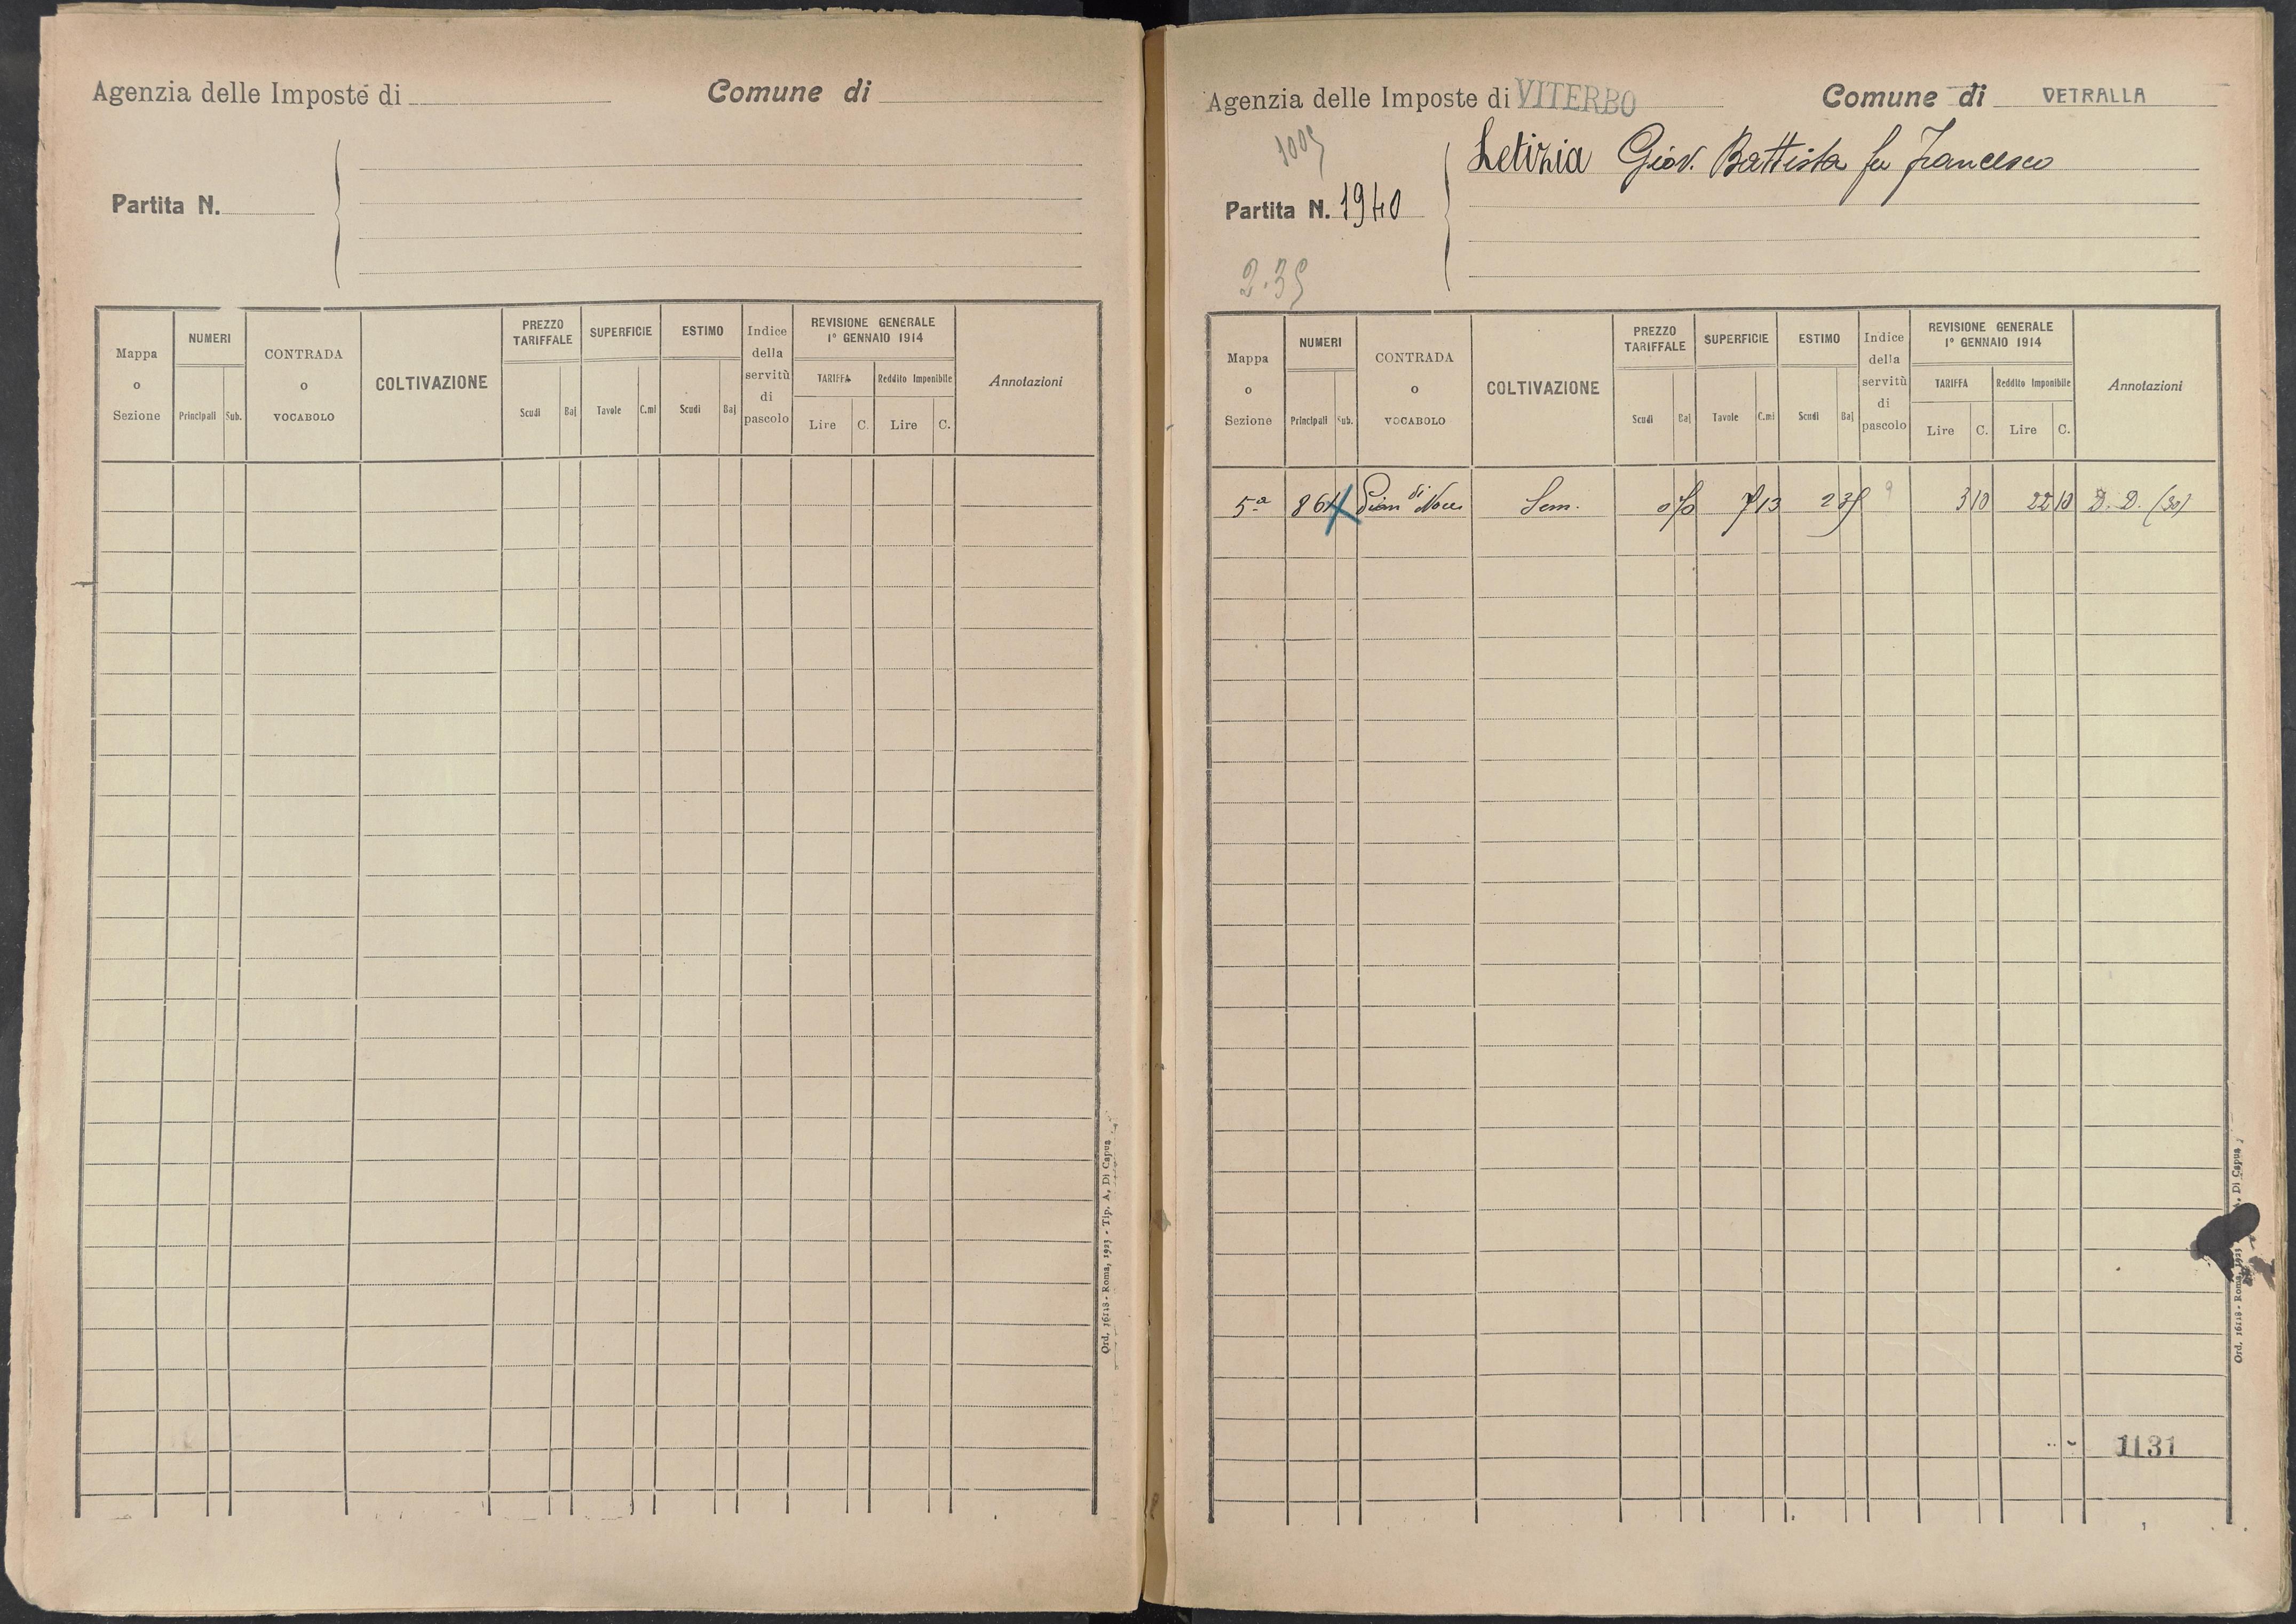 Agenzia delle Imposte di
Comune di
Partita N.
Mappa o Sezione
NUMERI
Principali
Sub.
CONTRADA o VOCABOLO
COLTIVAZIONE
PREZZO TARIFFALE
Scudi
Baj
SUPERFICIE
Tavole
C.mi
ESTIMO
Scudi
Baj
Indice della servitù di pascolo
REVISIONE GENERALE 1° GENNAIO 1914
TARIFFA
Reddito Imponibile
Lire
C.
Lire
C.
Annotazioni
Ord. 16118 - Roma, 1923 - Tip. A. Di Capua
Agenzia delle Imposte di VITERBO
Comune di VETRALLA
1005
Letizia Giov. Battista fu Francesco
Partita N. 1940
2.35
Mappa o Sezione
NUMERI
Principali
Sub.
CONTRADA o VOCABOLO
COLTIVAZIONE
PREZZO TARIFFALE
Scudi
Baj
SUPERFICIE
Tavole
C.mi
ESTIMO
Scudi
Baj
Indice della servitù di pascolo
REVISIONE GENERALE 1° GENNAIO 1914
TARIFFA
Reddito Imponibile
Lire
C.
Lire
C.
Annotazioni
5ª 864 Pian di Noce Sem. 7 13 2 35 9 3 10 22 10 D. D. (30)
Ord. 16118 - Roma, 1923 Di Capua
1131